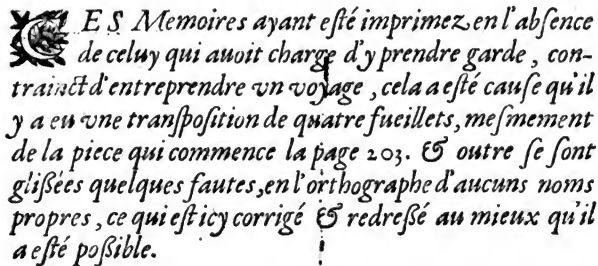 CES Memoires ayant eſté imprimez en l'abſence
de celuy qui auoit charge d'y prendre garde, con-
trainct d'entreprendre vn voyage, cela a eſté cauſe qu'il
y a eu vne tranſpoſition de quatre fueillets, meſmement
de la piece qui commence la page 203. & outre ſe ſont
gliſſées quelques fautes, en l'orthographe d'aucuns noms
propres, ce qui eſt icy corrigé & redreſſé au mieux qu'il
a eſté poſſible.